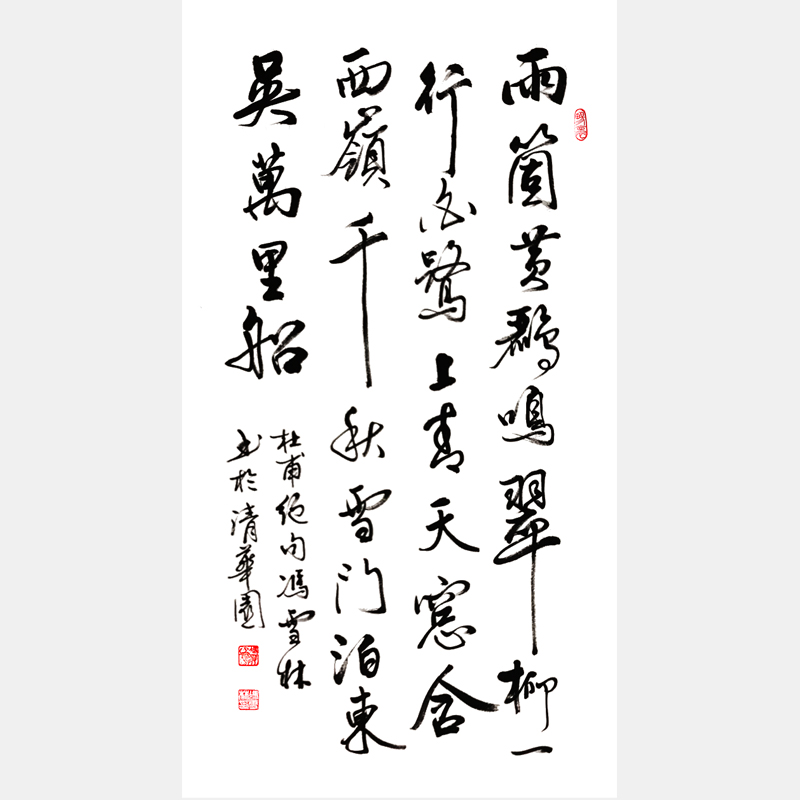 兩箇黃鸝鳴翠柳一
行白鷺上青天窓含
西嶺千秋雪門泊東
吳萬里船
杜甫絕句馮雪林
书於清華園